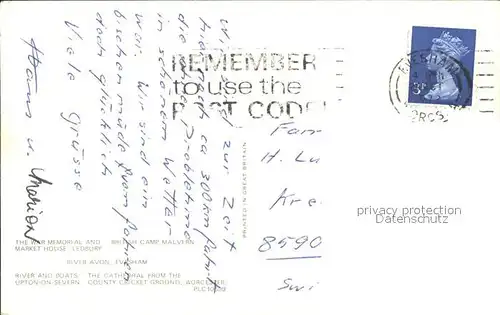 Wir sind zur Zeit
hier nach ca 300 km Fahrt
die ohne Probleme
in schönem Wetter
war. Wir sind ein
bischen müde vom fahren
doch glücklich
Viele Grüsse
Hans u. Marion
REMEMBER
to use the
POST CODE
EVESHAM
WORCS.
3P
Fam
H. Lu
Kre
8590
Swi
PRINTED IN GREAT BRITAIN
privacy protection
Datenschutz
THE WAR MEMORIAL AND BRITISH CAMP MALVERN
MARKET HOUSE LEDBURY
RIVER AVON, EVESHAM
RIVER AND BOATS THE CATHEDRAL FROM THE
UPTON-ON-SEVERN COUNTY CRICKET GROUND, WORCESTER